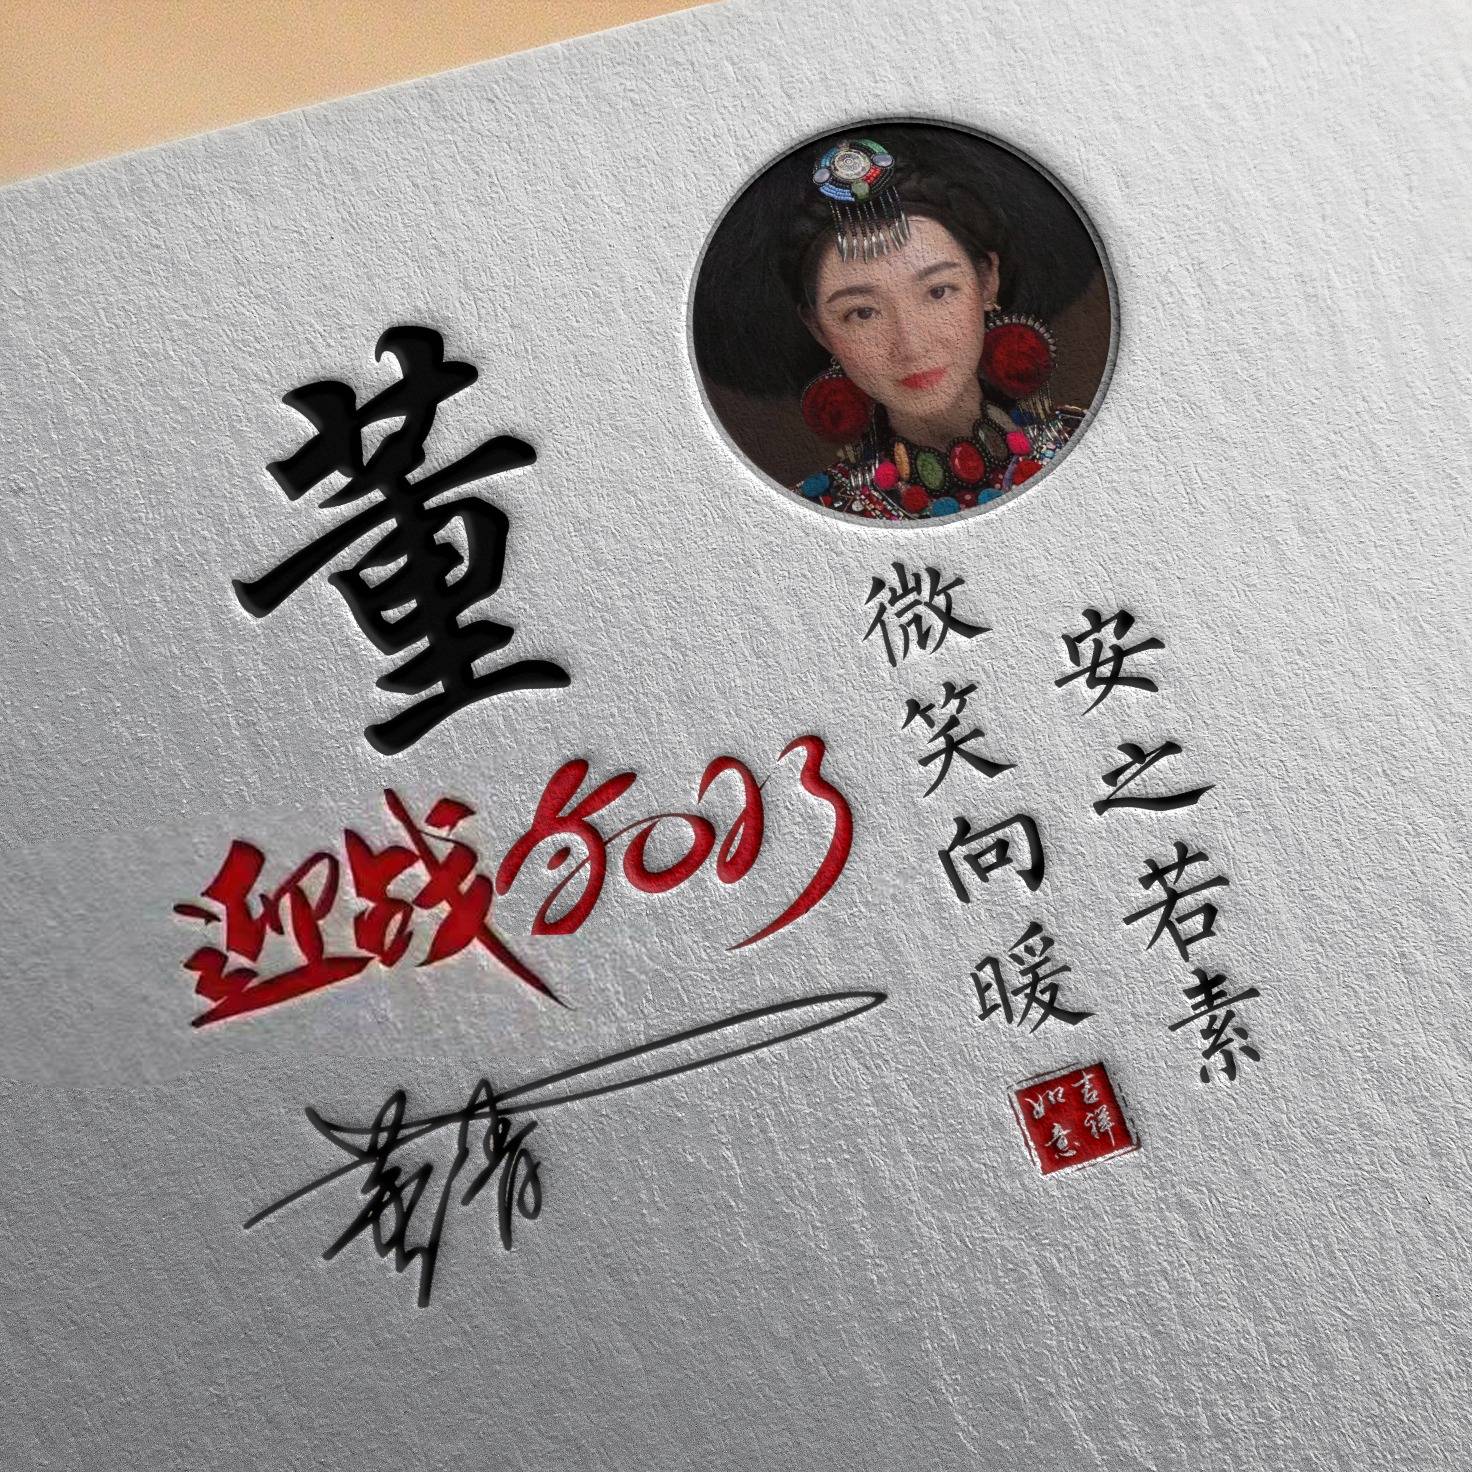 董
迎战2023
微笑向暖
安之若素
吉祥
如意